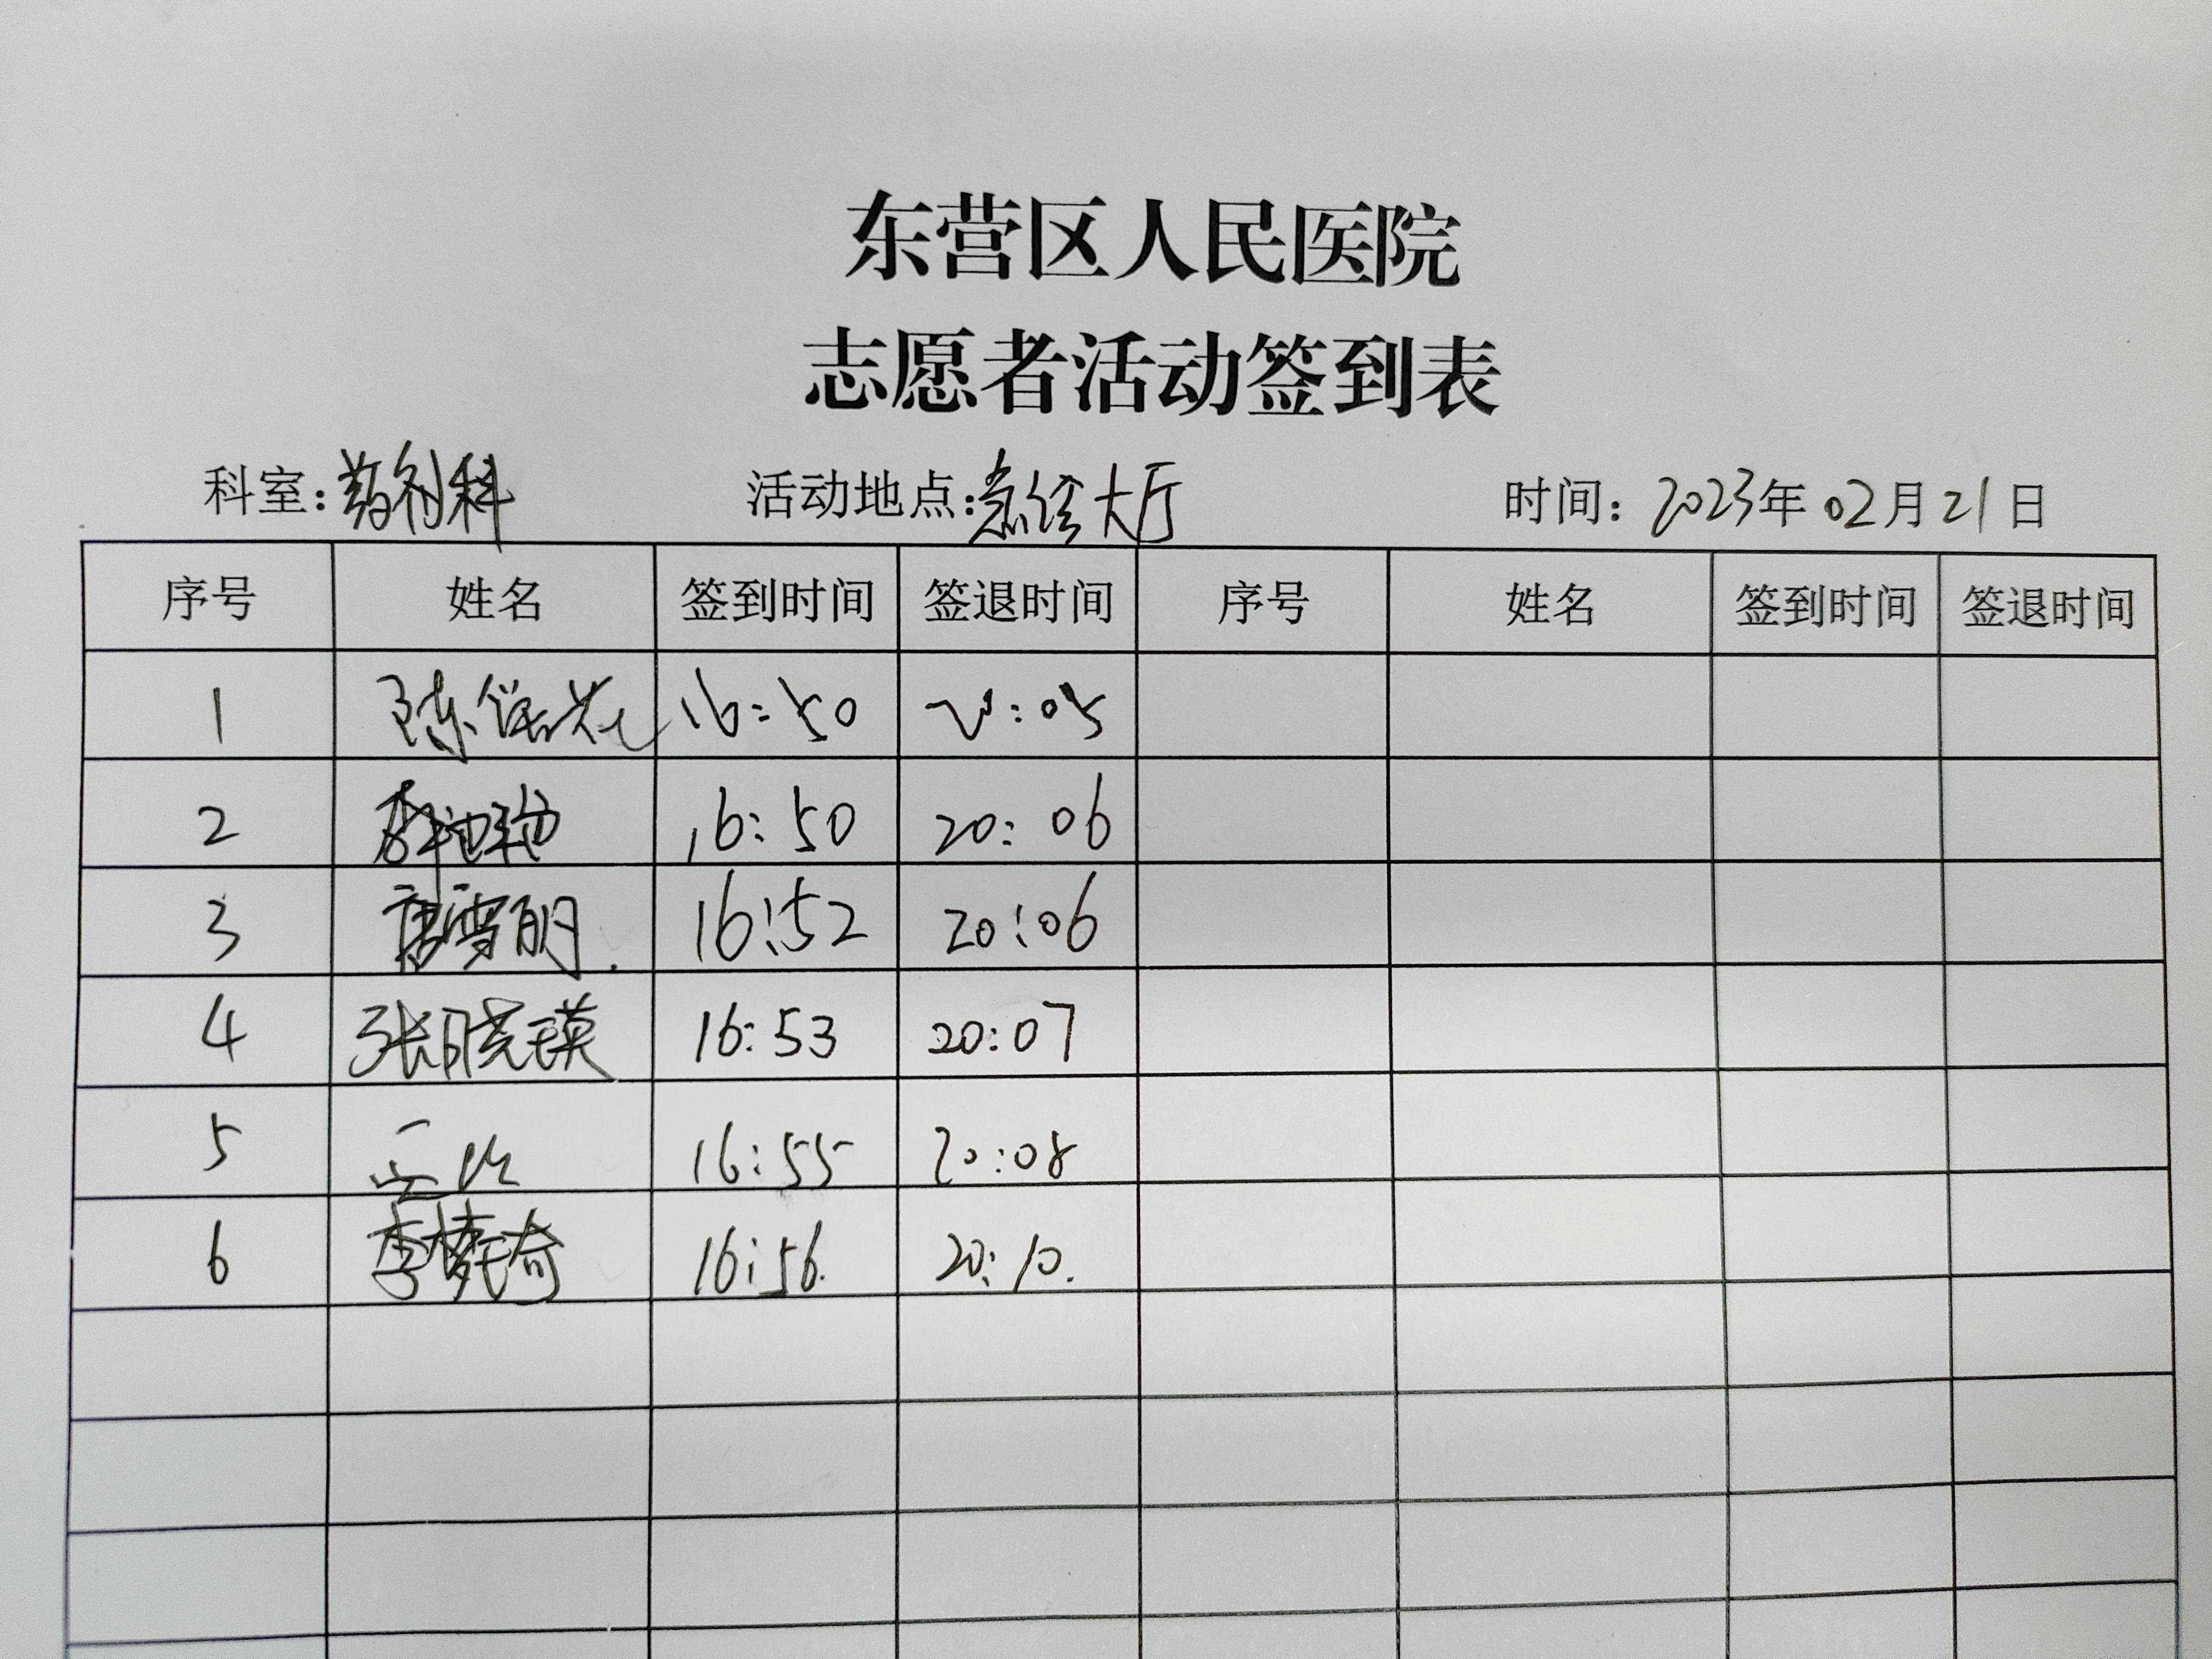 东营区人民医院
志愿者活动签到表
科室：药剂科 活动地点：急诊大厅 时间：2023年02月21日
序号 姓名 签到时间 签退时间 序号 姓名 签到时间 签退时间
1 陈 花 16:50 20:05
2 李 16:50 20:06
3 唐雪明. 16:52 20:06
4 张晓瑛 16:53 20:07
5 16:55 20:08
6 李梦琦 16:56. 20:10.